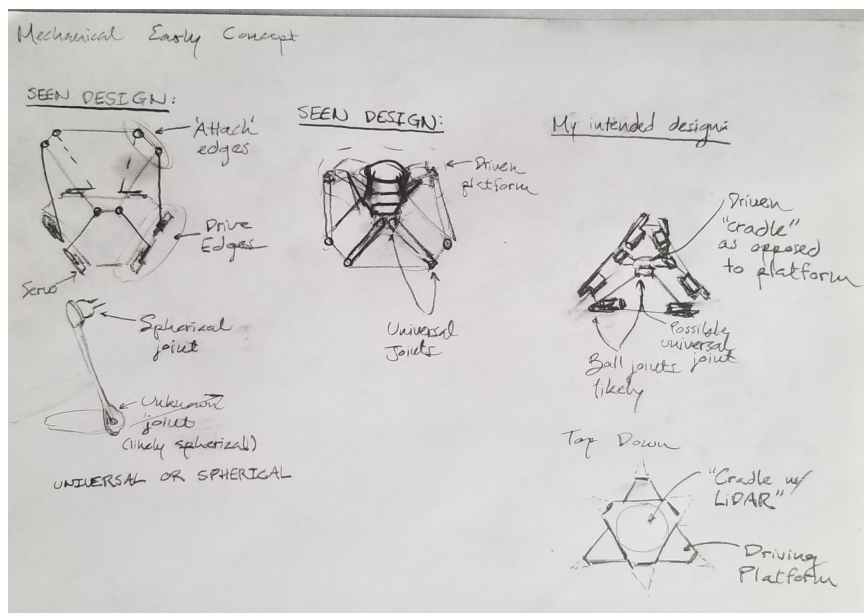 Mechanical Early Concept
SEEN DESIGN:
'Attach'
edges
Drive
Edges
Servo
Spherical
joint
Unknown
joint
(likely spherical)
UNIVERSAL OR SPHERICAL
SEEN DESIGN:
Driven
platform
Universal
Joints
My intended design:
Driven
"cradle"
as opposed
to platform
Possible
universal
joint
Ball joints
likely
Top Down
"Cradle w/
LiDAR"
Driving
Platform